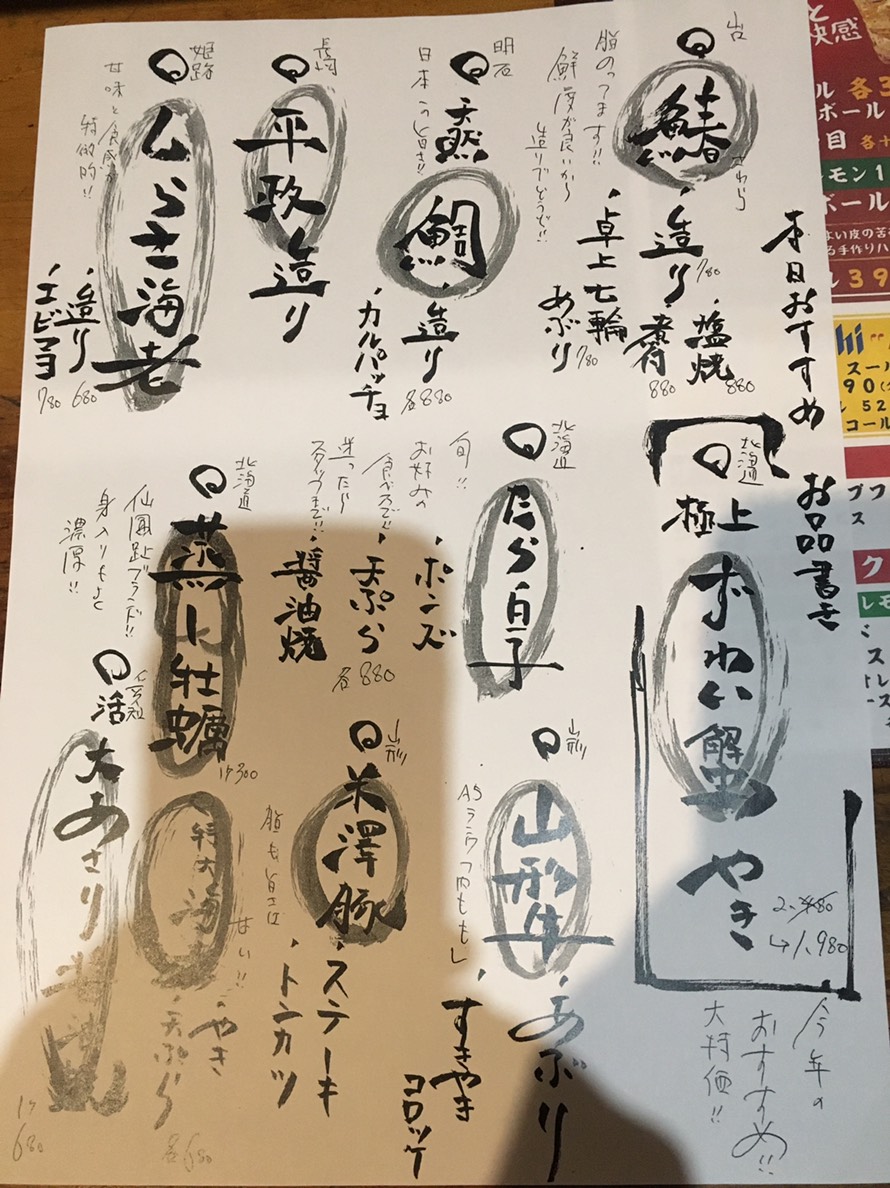 本日おすすめ
お品書き
鰆
さわら
・造り
780
・塩焼
880
・煮付
880
・卓上七輪
あぶり
780
脂のってます!!
鮮度が良いから
造りでどうぞ!!
明石
天然
鯛
・造り
各880
・カルパッチョ
長崎
平政
造り
姫路
しらさ海老
甘味と食感が
特徴的!!
・造り
680
・エビマヨ
780
北海道
極上
ずわい蟹
やき
2,480
↳1,980
今年の
おすすめ!!
大特価!!
北海道
たら白子
旬!!
お好みの
食べ方で!!
・ポンズ
・天ぷら
・醤油焼
各880
北海道
蒸し牡蠣
仙鳳趾ブランド!!
身入りもよく
濃厚!!
1ヶ300
山形
山形牛
A5ランク内もも
・あぶり
・すきやき
コロッケ
山形
米澤豚
・ステーキ
・トンカツ
特大海
・やき
・天ぷら
各680
活
大あさり
1ヶ
680
ボール
レモン
ボール